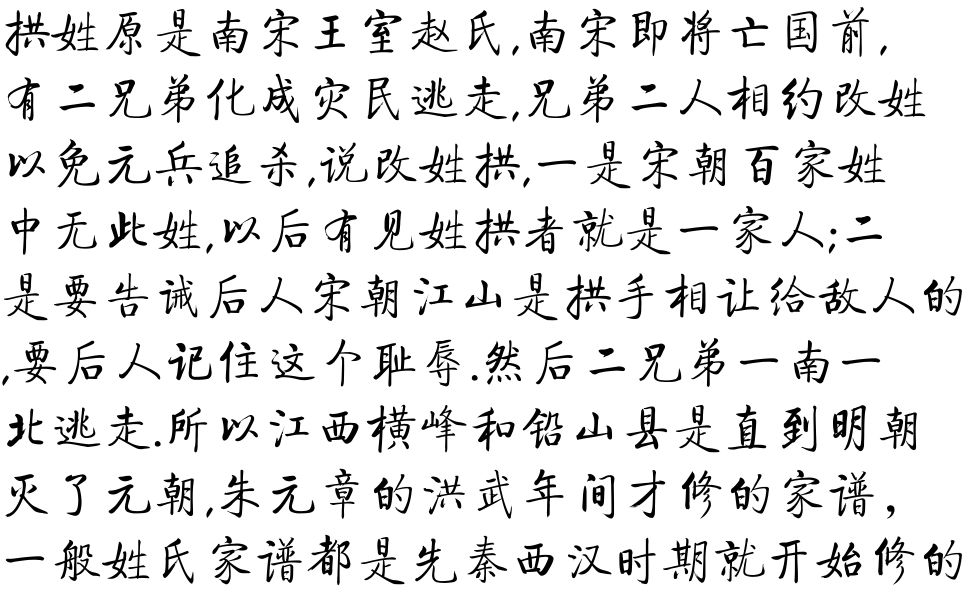 拱姓原是南宋王室赵氏,南宋即将亡国前,
有二兄弟化成灾民逃走,兄弟二人相约改姓
以免元兵追杀,说改姓拱,一是宋朝百家姓
中无此姓,以后有见姓拱者就是一家人;二
是要告诫后人宋朝江山是拱手相让给敌人的
,要后人记住这个耻辱.然后二兄弟一南一
北逃走.所以江西横峰和铅山县是直到明朝
灭了元朝,朱元章的洪武年间才修的家谱，
一般姓氏家谱都是先秦西汉时期就开始修的